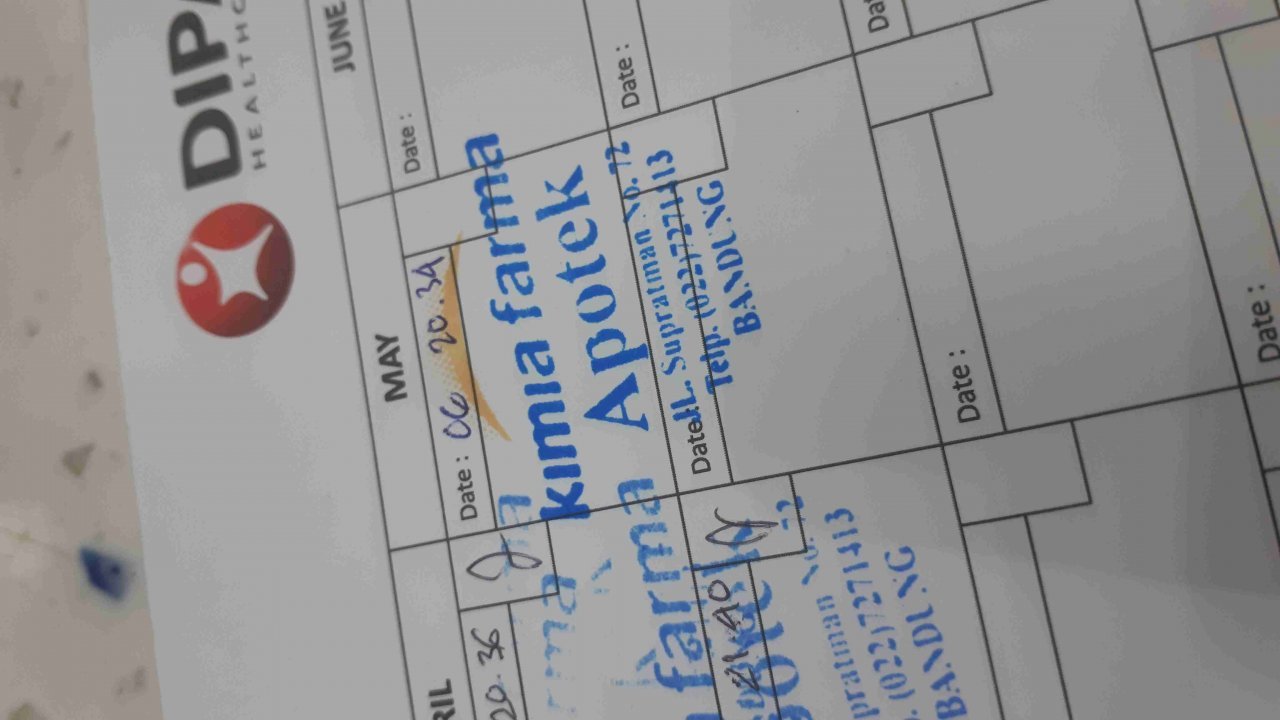 DIPA
HEALTHC
RIL
MAY
JUNE
20.36
Date : 06 20.34
Date :
kimia farma
Apotek
JL. Supratman No. 72
Telp. (022)7271413
BANDUNG
Date :
Date :
farma
21.40
pratman No. 72
. (022)7271413
BANDUNG
Date :
Da
Date :